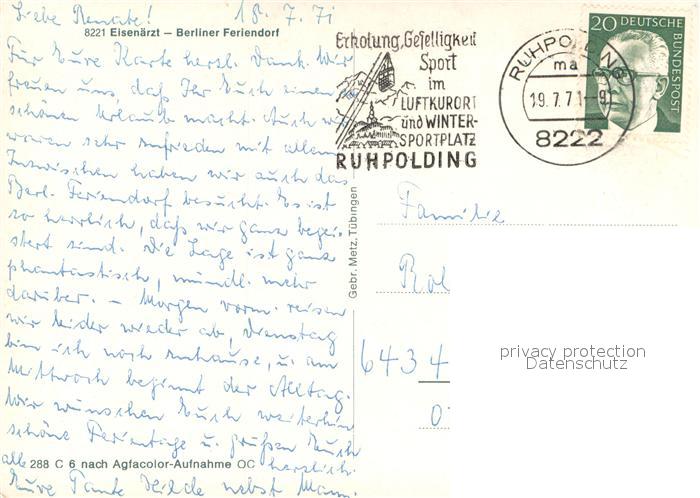 Liebe Renate! 18. 7. 71
8221 Eisenärzt – Berliner Feriendorf
Für Eure Karte herzl. Dank. Wir
freuen uns, daß Ihr Euch einen
schönen Urlaub macht. Auch wir
waren sehr zufrieden mit allem.
Inzwischen haben wir auch das
Berl. Feriendorf besucht. Es ist
so herrlich, daß wir ganz begei-
stert sind. Die Lage ist ganz
phantastisch, mündl. mehr
darüber. – Morgen vorm. reisen
wir leider wieder ab, Dienstag
bin ich noch zuhause, u. am
Mittwoch beginnt der Alltag.
Wir wünschen Euch weiterhin
schöne Ferientage u. grüßen Euch
alle herzlich.
288 C 6 nach Agfacolor-Aufnahme OC
Eure Tante Hilde nebst Mann.
Gebr. Metz, Tübingen
Erholung, Geselligkeit
Sport
im
LUFTKURORT
und WINTER-
SPORTPLATZ
RUHPOLDING
RUHPOLDING
ma
19.7.71-9
8222
20 DEUTSCHE
BUNDESPOST
Familie
Rol
6434
privacy protection
Datenschutz